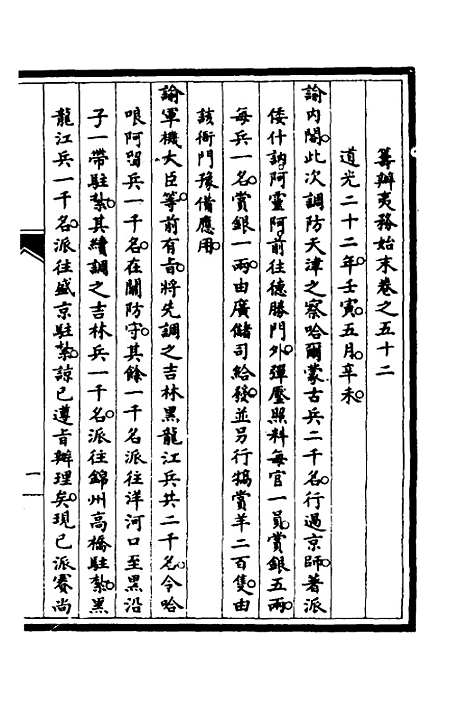 籌辦夷務始末卷之五十二
道光二十二年壬寅。五月。辛未。
諭內閣。此次調防天津之察哈爾蒙古兵二千名。行過京師。著派
倭什訥。阿靈阿。前往德勝門外。彈壓照料。每官一員。賞銀五兩。
每兵一名。賞銀一兩。由廣儲司給發。並另行犒賞羊二百隻。由
該衙門豫備應用。
諭軍機大臣等。前有旨。將先調之吉林黑龍江兵共二千名。令哈
哴阿留兵一千名。在關防守。其餘一千名派往洋河口至黑沿
子一帶駐紮。其續調之吉林兵一千名。派往錦州高橋駐紮。黑
龍江兵一千名。派往盛京駐紮。諒已遵旨辦理矣。現已派賽尚
一